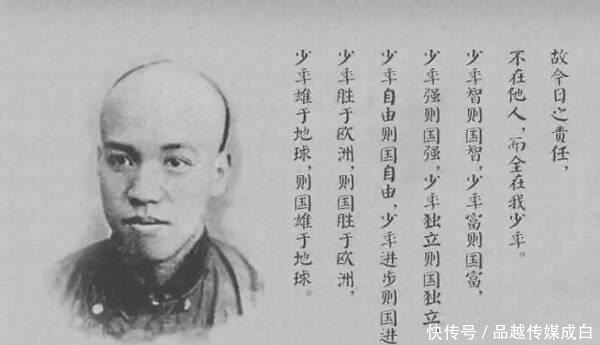 故今日之责任，
不在他人，而全在我少年。
少年智则国智，少年富则国富，
少年强则国强，少年独立则国独立
少年自由则国自由，少年进步则国进
少年胜于欧洲，则国胜于欧洲，
少年雄于地球，则国雄于地球。
快传号 / 品越传媒成白